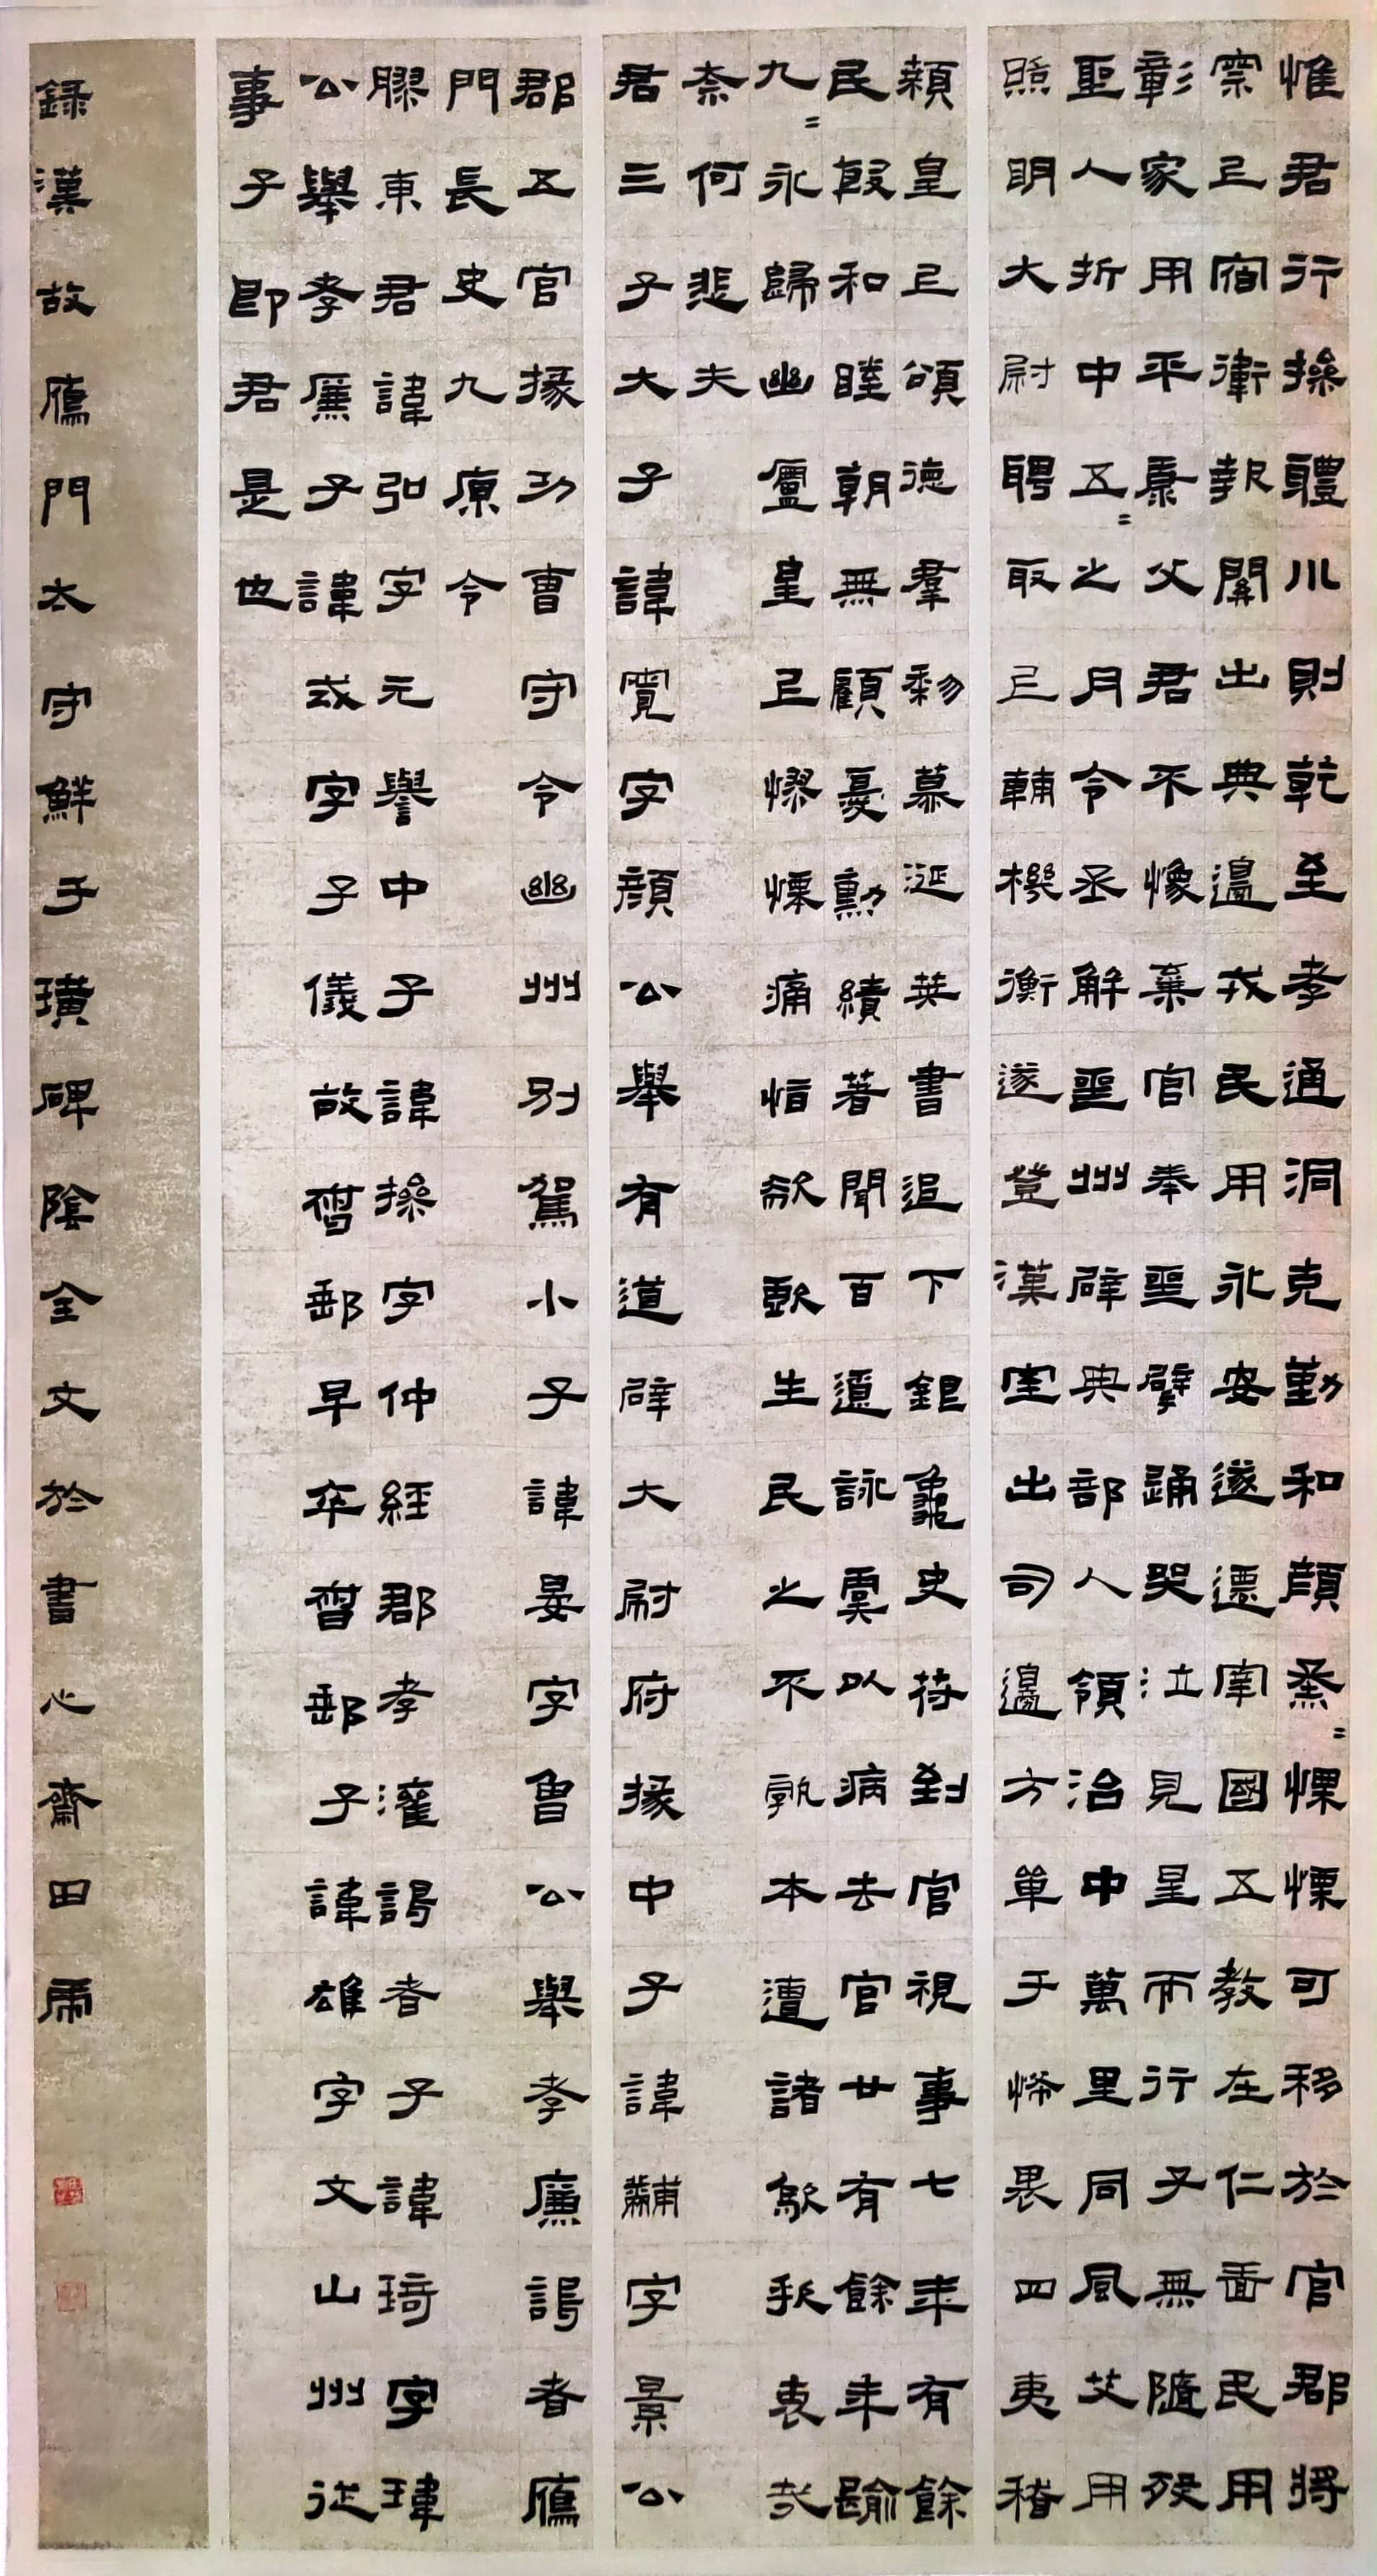 惟君行操體川則乾至孝通洞克勤和顏烝〻慄慄可移於官郡將
察㠯宿衛報關出典邊戎民用永安遂遷宰國五教在仁嗇民用
彰家用平康父君不像棄官奉喪擗踊哭泣見星而行子無隨殁
聖人折中五〻之月令丞解喪州辟典部入領治中萬里同風艾用
照明大尉聘取㠯輔機衡遂登漢室出司邊方單于怖畏四夷稽
顙皇㠯頌德羣黎慕涎英書追下銀龜史符到官視事七年有餘
民殷和睦朝無顧憂勳績著聞百遼詠虞以病去官廿有餘年踰
九〻永歸幽廬皇㠯憀慄痛惜欷歔生民之不孰本遭諸歍欭哀哉
柰何悲夫
君三子大子諱寬字顏公舉有道辟大尉府掾中子諱黼字景公
郡五官掾功曹守令幽州別駕小子諱晏字魯公舉孝廉謁者鴈
門長史九原令
膠東君諱弘字元譽中子諱操字仲經郡孝灌謁者子諱琦字瑋
公舉孝廉子諱或字子儀故督郵早卒督郵子諱雄字文山州從
事子即君是也
錄漢故鴈門太守鮮于璜碑陰全文於書心齋田